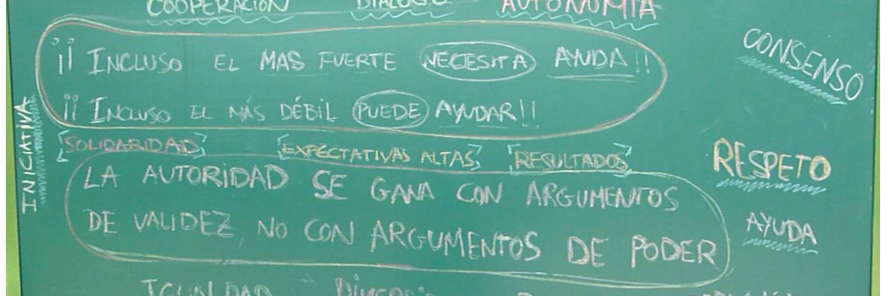 COOPERACIÓN DIÁLOGO AUTONOMÍA
¡¡ INCLUSO EL MAS FUERTE NECESITA AYUDA!!
CONSENSO
¡¡ INCLUSO EL MÁS DÉBIL PUEDE AYUDAR!!
INICIATIVA
SOLIDARIDAD EXPECTATIVAS ALTAS RESULTADOS
RESPETO
LA AUTORIDAD SE GANA CON ARGUMENTOS
DE VALIDEZ NO CON ARGUMENTOS DE PODER
AYUDA
IGUALDAD